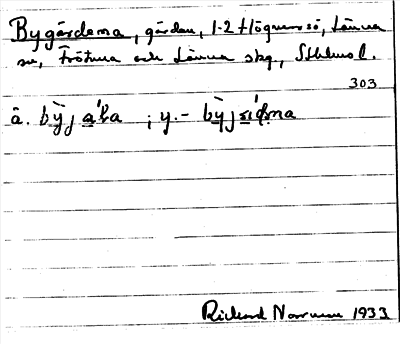 Bygårdarna, gårdar, 1-2 Högmarsö, Länna
sn, Frötuna och Länna skg, Sthlms l.
303
å. bỳj a̲'ka ; y.- bỳj
Rickard 1933